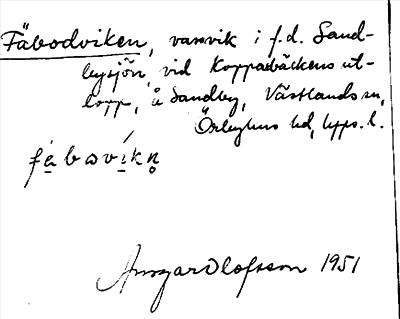 Fäbodviken, vassvik i f.d. Sand-
bysjön, vid Kopparbäckens ut-
lopp, å Sandby, Västlands sn,
Örbyhus hd, Upps. l.
Ansgar Olofsson 1951